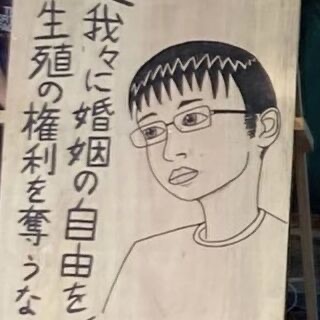 我々に婚姻の自由を
生殖の権利を奪うな